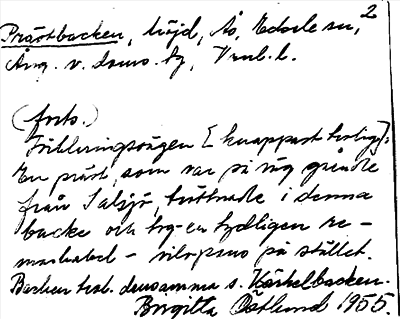 2
Prästbacken, höjd, Ås, Edsele sn,
Ång. v. doms. fg, Vnrl. l.
(forts.)
Förklaringssägen [knappast trolig]:
En präst, som var på väg
från Salsjö, tröttnade i denna
backe och tog en tydligen re-
markabel - vilopaus på stället.
Backen trol. densamma s. Kärkelbacken.
Birgitta Östlund 1955.